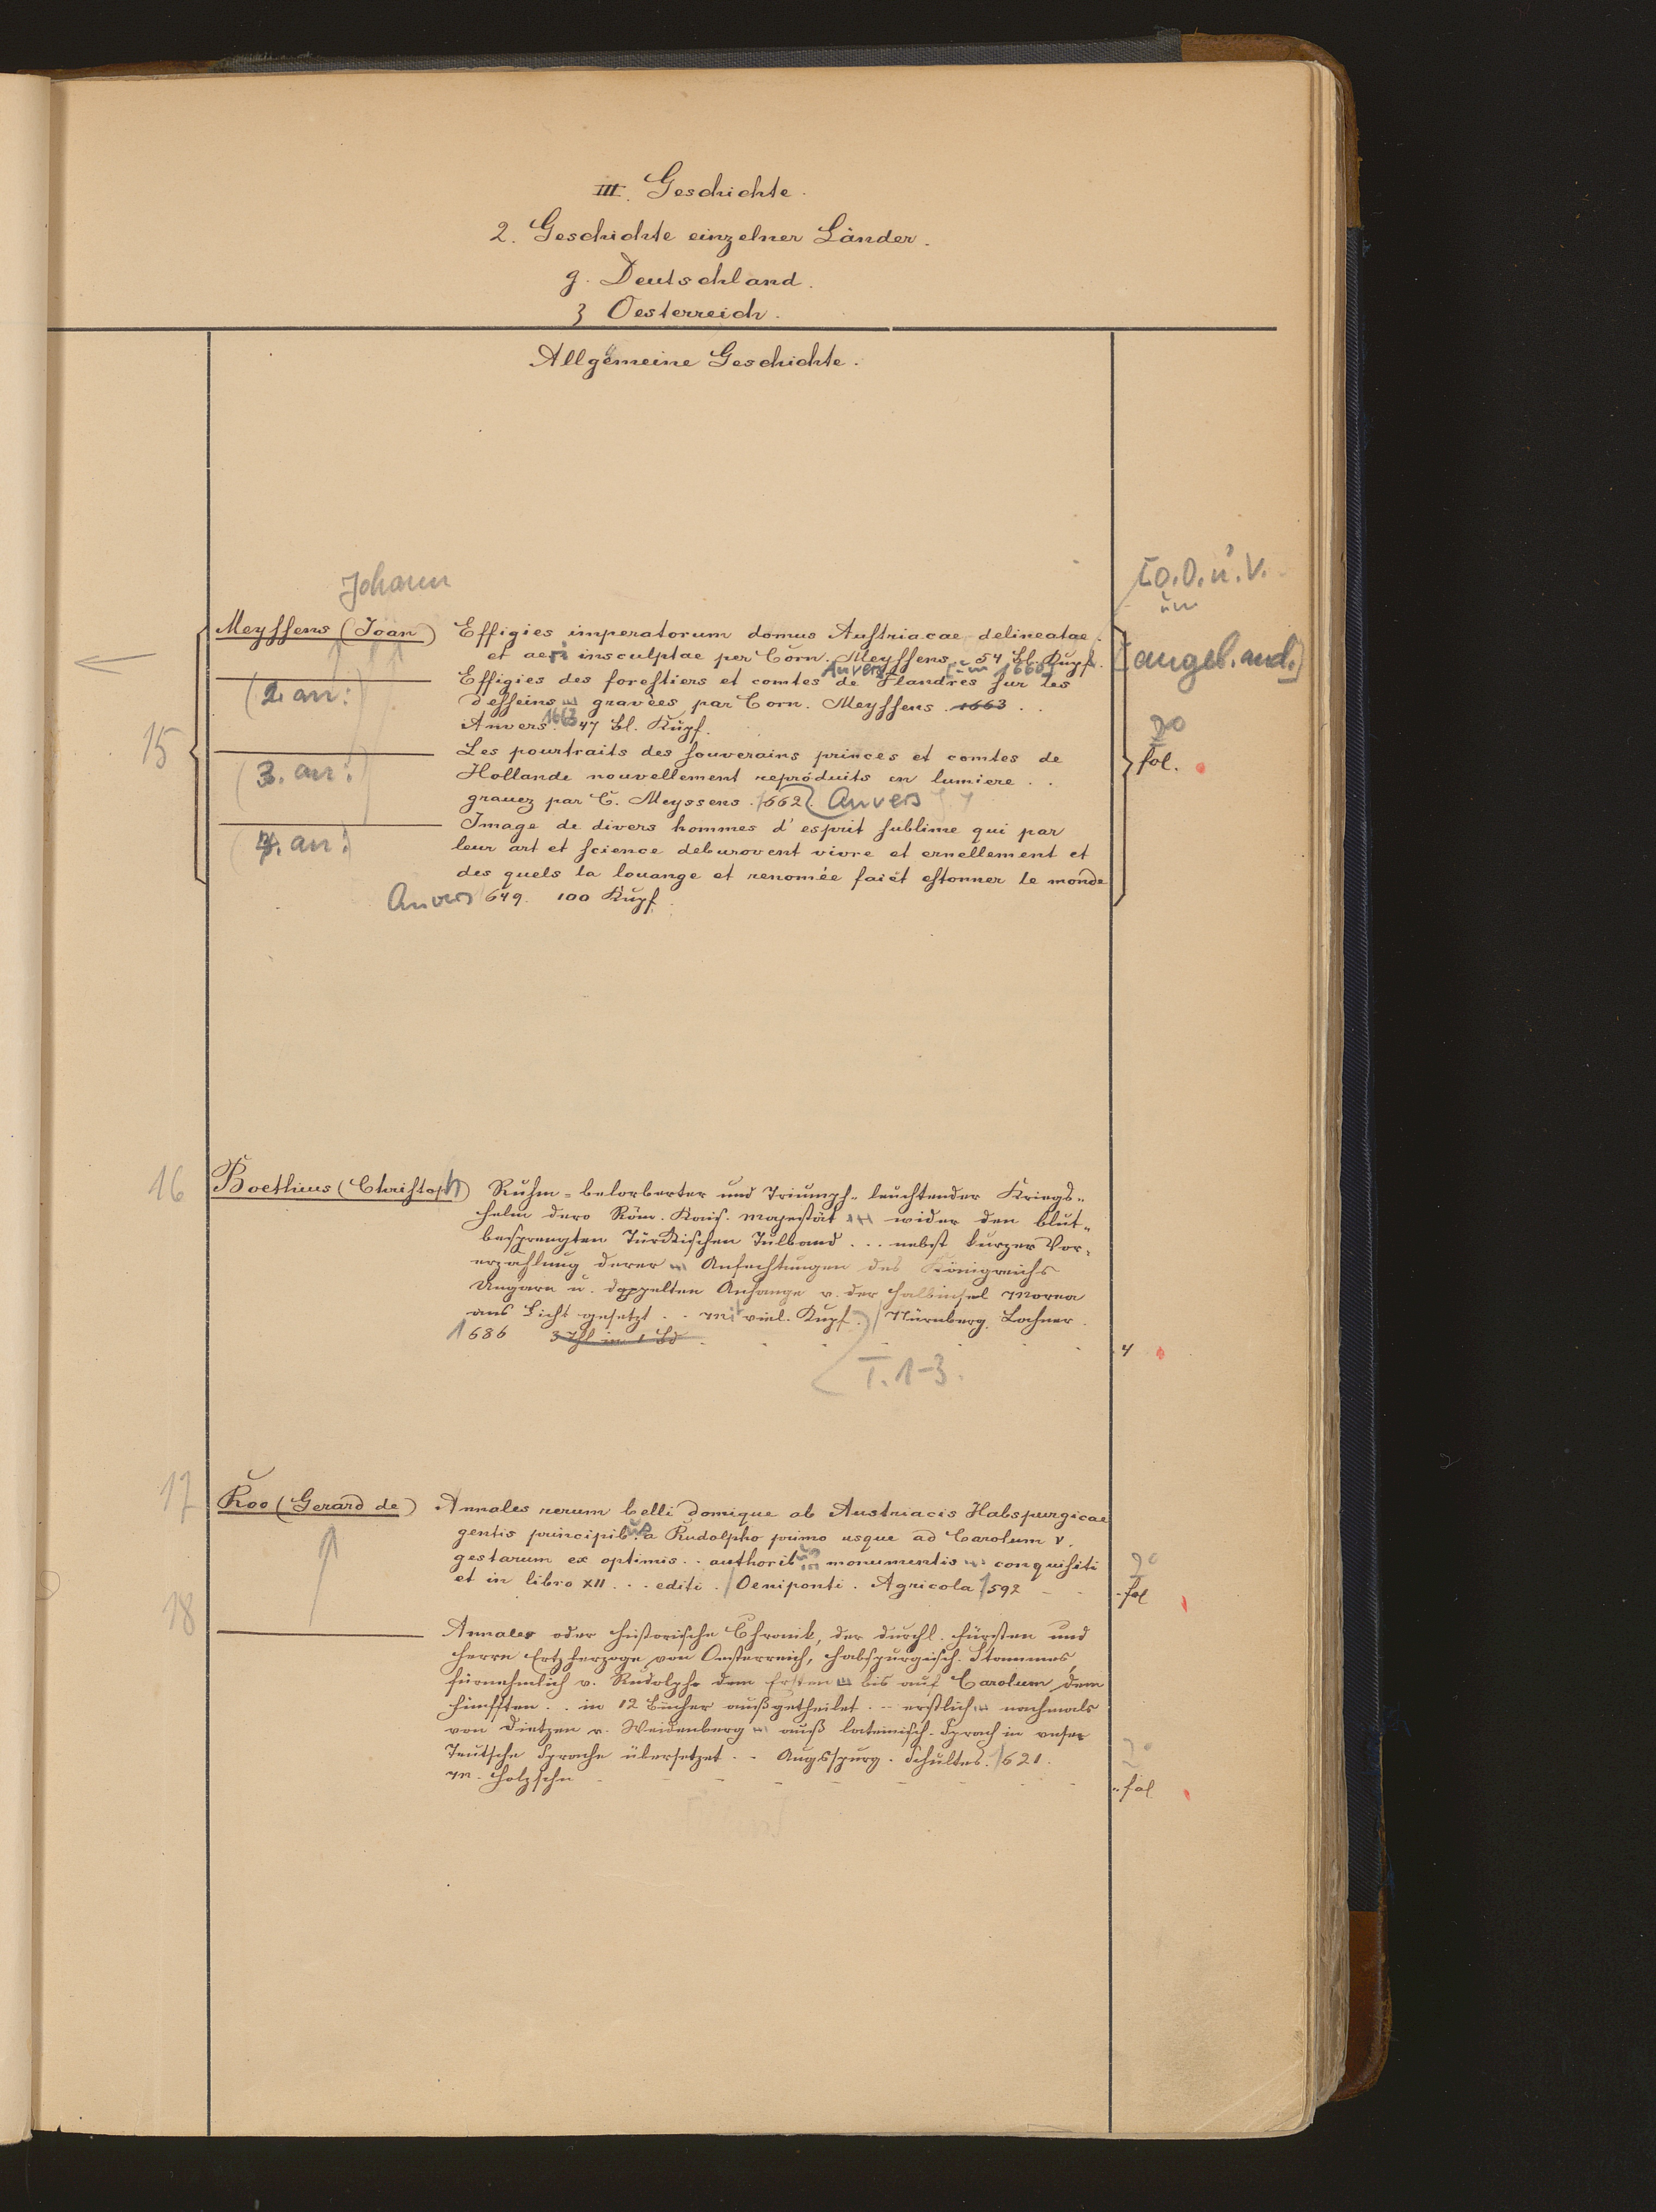 III. Geschichte.
2. Geschichte einzelner Länder.
g. Deutschland.
3 Oesterreich.
Allgemeine Geschichte.
Johann
[o.O.u.V.
um
15
Meyssens (Joan) Effigies imperatorum domus Austriacae delineatae
et aeri insculptae per Corn. Meyssens. 54 Bl. Kupf. [angeb. and.]
Anvers [um 1660]
(2 an:) Effigies des forestiers et comtes de Flandres sur les
desseins gravées par Corn. Meyssens. 1663 . .
Anvers. 1663 47 Bl. Kupf. 2°
(3. an:) Les pourtraits des souverains princes et comtes de fol.
Hollande nouvellement reproduits en lumiere . .
grauez par C. Meyssens. 1662. Anvers
(4. an:) Image de divers hommes d'esprit sublime qui par
leur art et science deburovent vivre et ernellement et
des quels la louange et renomée faict estonner le monde
Anvers 1649. 100 Kupf.
16 Boethius (Christoph) Ruhm-belorberter und Triumph-leuchtender Kriegs-
helm dero Röm. Kais. Majestät wider den blut-
besprengten Türckischen Tulband . . . nebst kurzer Vor-
erzählung derer Anfechtungen des Königreichs
Ungarn u. doppelten Anhange v. der Halbinsel Morea
ans Licht gesetzt . . Mit viel. Kupf. / Nürnberg. Lochner.
1686 3 Thl in 1 Bd 4
T. 1-3.
17 Roo (Gerard de) Annales rerum belli domique ab Austriacis Habspurgicae
gentis principibus a Rudolpho primo usque ad Carolum V.
gestarum ex optimis . . authoribus monumentis conquisiti 2°
et in libro XII . . . editi. / Oeniponti. Agricola 1592 fol
18 Annales oder historische Chronik, der durchl. Fürsten und
Herrn Ertzherzoge von Oesterreich, Habspurgisch. Stammes,
fürnehmlich v. Rudolpho dem Ersten bis auf Carolum dem
Fünfften . . in 12 Bücher außgetheilet . . erstlich nachmals
von Dietzen v. Weidenberg auß lateinisch. Sprach in unser
Teutsche Sprache übersetzet . . Augsspurg. Schultes. 1621. 2°
M. Holzschn fol